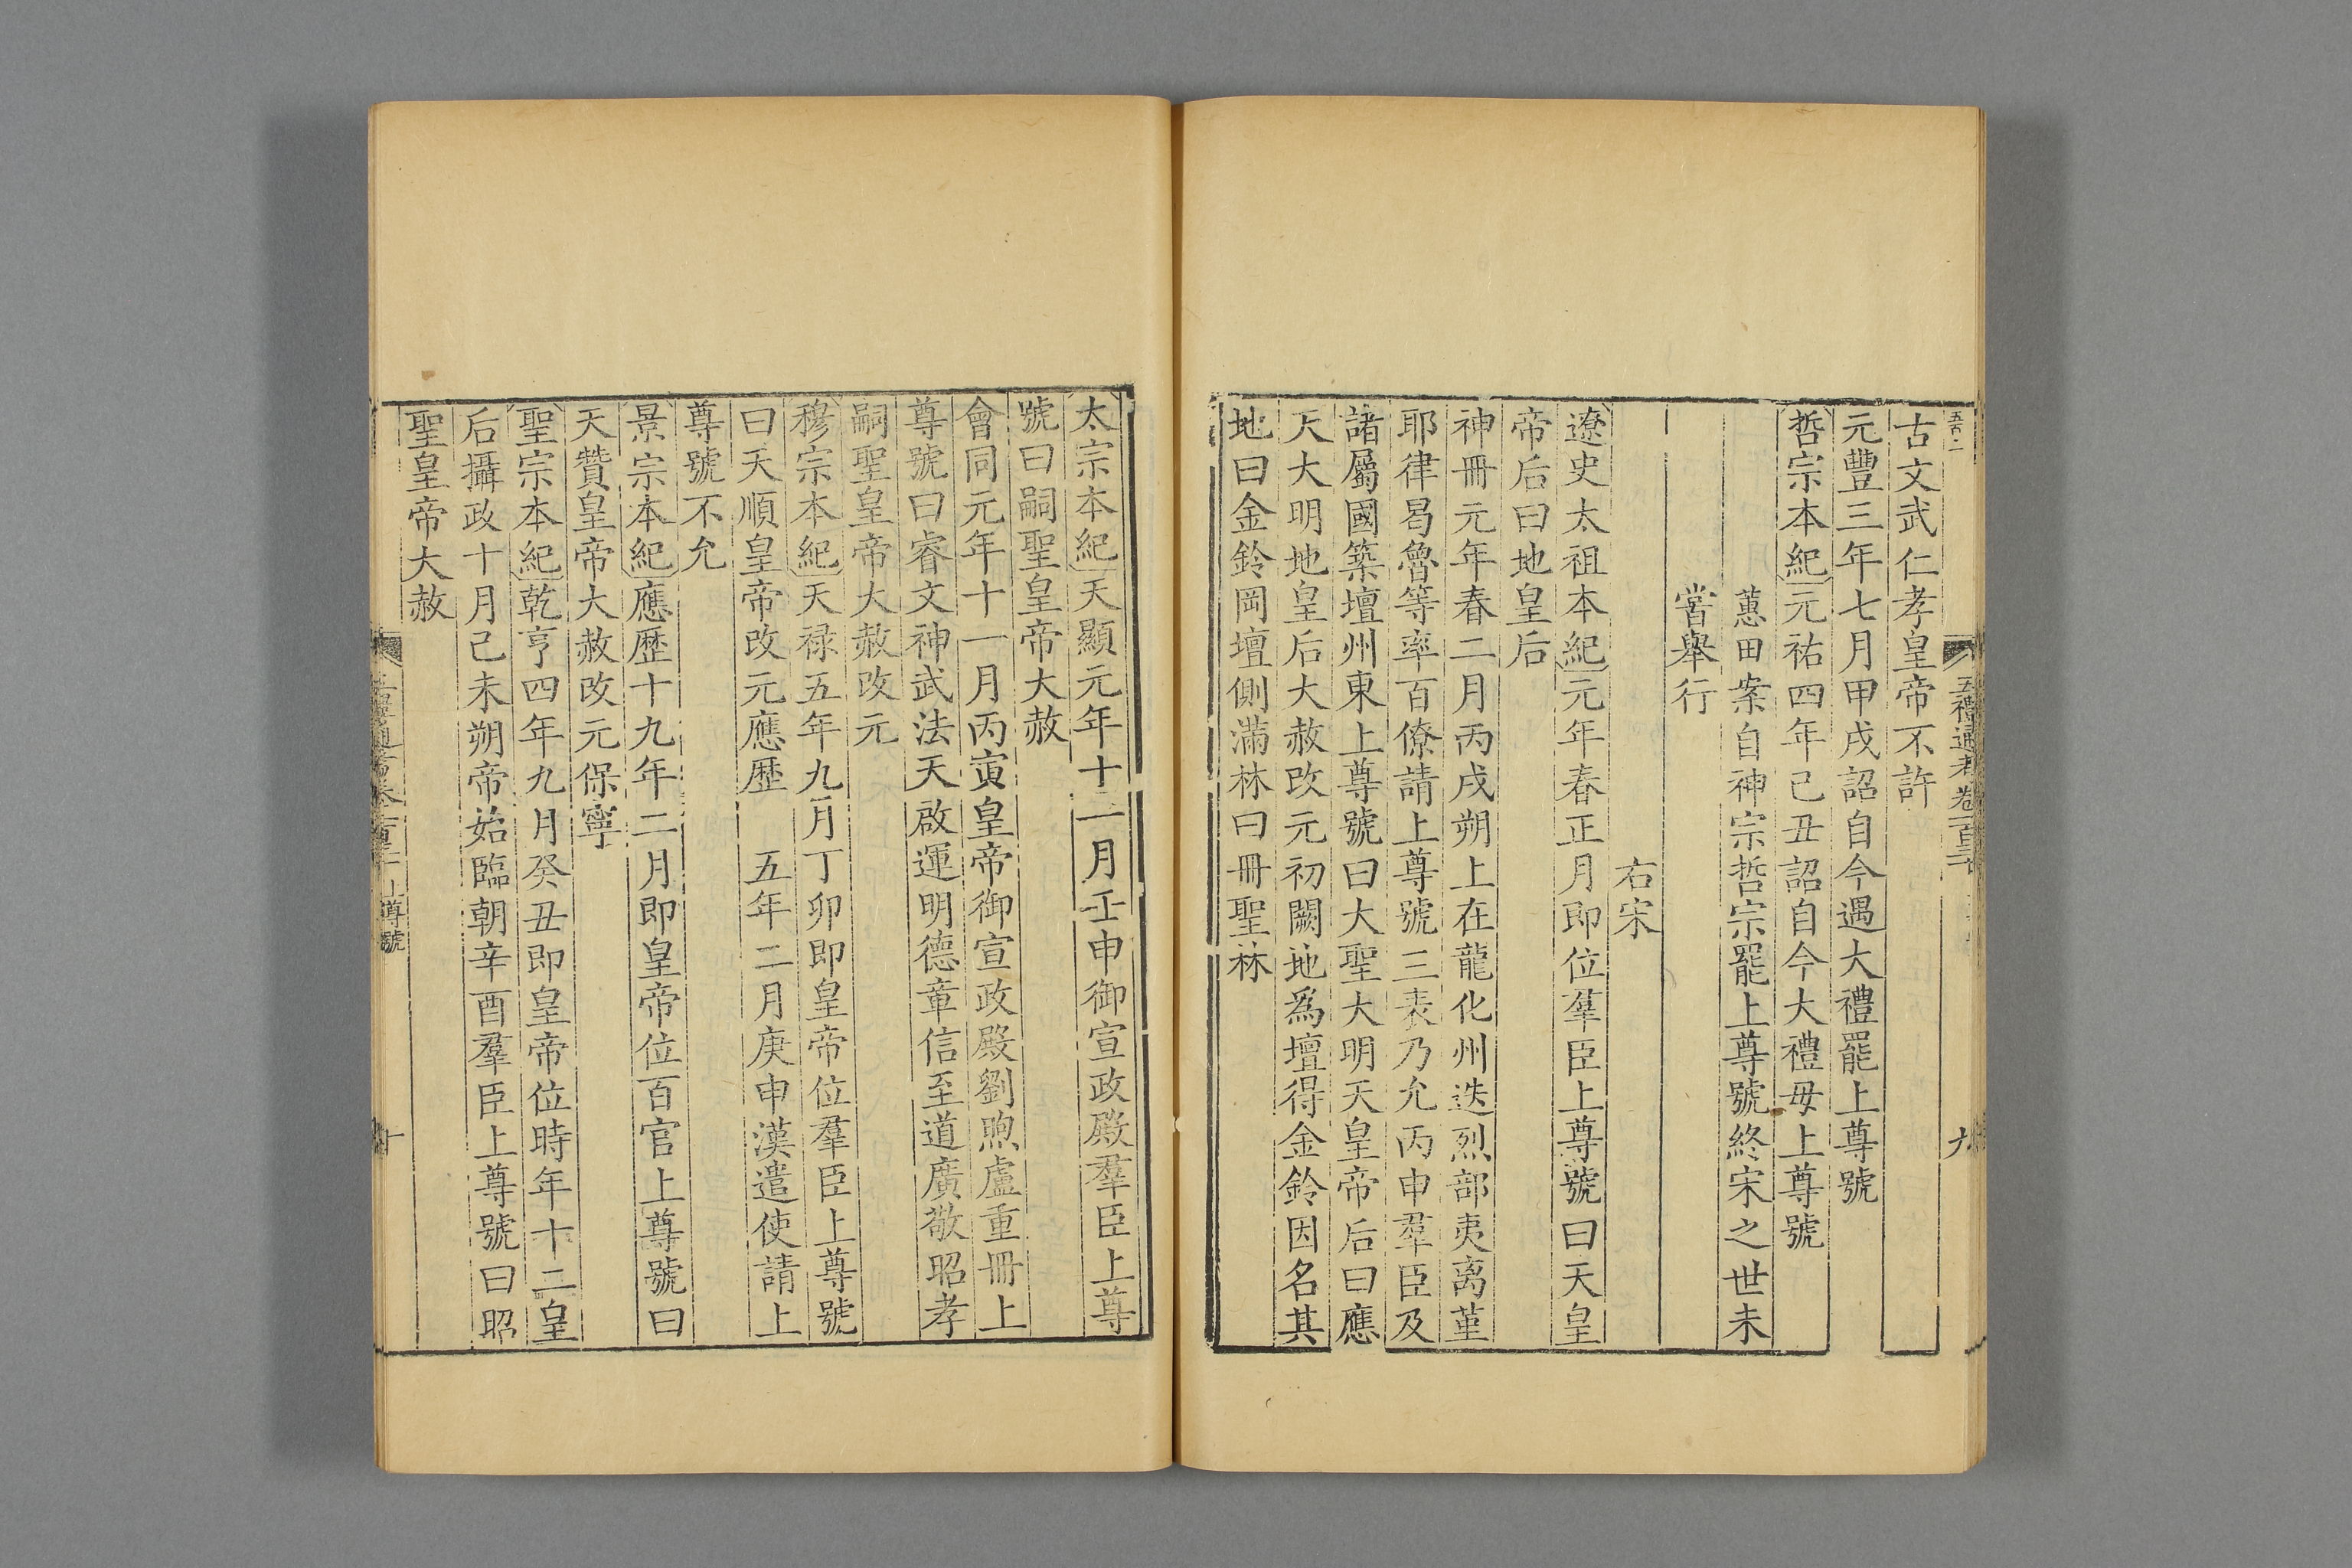 古文武仁孝皇帝不許
元豐三年七月甲戌詔自今遇大禮罷上尊號
哲宗本紀元祐四年己丑詔自今大禮毋上尊號
蕙田案自神宗哲宗罷上尊號終宋之世未
嘗舉行
右宋
遼史太祖本紀元年春正月即位羣臣上尊號曰天皇
帝后曰地皇后
神冊元年春二月丙戌朔上在龍化州迭烈部夷离堇
耶律曷魯等率百僚請上尊號三表乃允丙申羣臣及
諸屬國築壇州東上尊號曰大聖大明天皇帝后曰應
天大明地皇后大赦改元初闕地爲壇得金鈴因名其
地曰金鈴岡壇側滿林曰冊聖林
太宗本紀天顯元年十二月壬申御宣政殿羣臣上尊
號曰嗣聖皇帝大赦
會同元年十一月丙寅皇帝御宣政殿劉煦盧重冊上
尊號曰睿文神武法天啟運明德章信至道廣敬昭孝
嗣聖皇帝大赦改元
穆宗本紀天禄五年九月丁卯即皇帝位羣臣上尊號
曰天順皇帝改元應歷　五年二月庚申漢遣使請上
尊號不允
景宗本紀應歷十九年二月即皇帝位百官上尊號曰
天贊皇帝大赦改元保寧
聖宗本紀乾亨四年九月癸丑即皇帝位時年十二皇
后攝政十月己未朔帝始臨朝辛酉羣臣上尊號曰昭
聖皇帝大赦